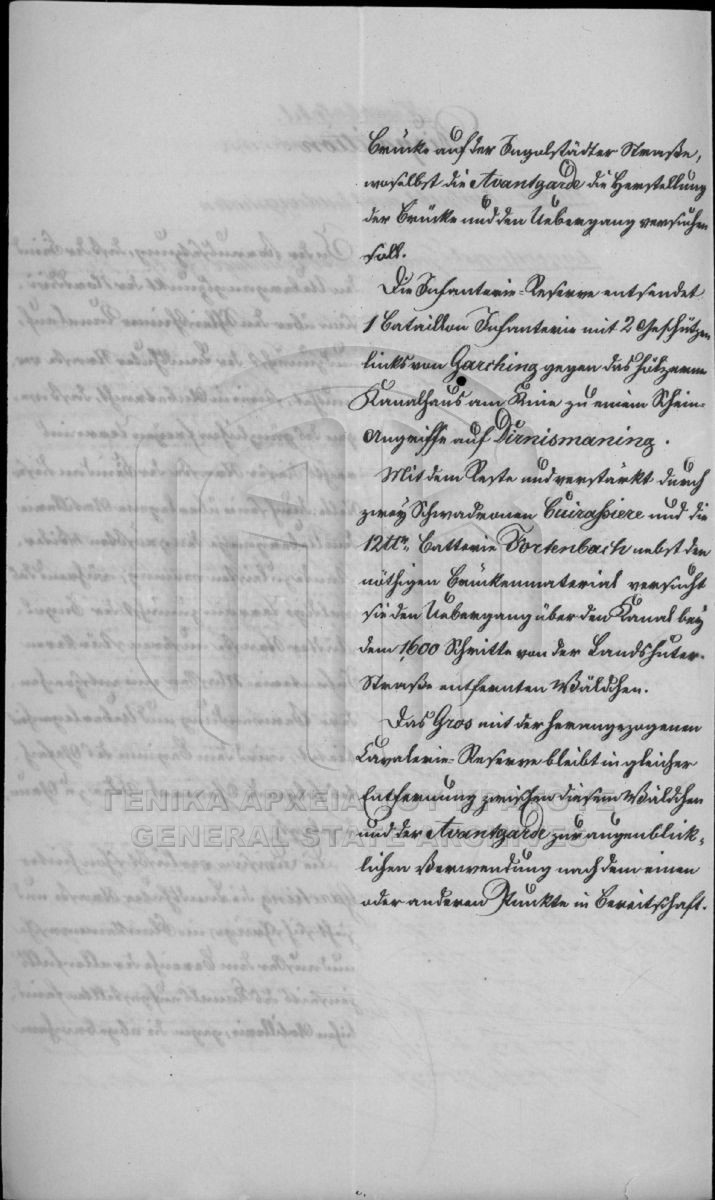 Brücke auf der Ingolstädter Straße,
woselbst die Avantgarde die Herstellung
der Brücke und den Uebergang versuchen
soll.
Die Infanterie-Reserve entsendet
1 Bataillon Infanterie mit 2 Geschützen
links von Garching gegen das hölzerne
Kanalhaus am Knie zu einem Schein-
Angriffe auf Dirnismaning.
Mit dem Reste und verstärkt durch
zwey Schwadronen Cuirassiere und die
12tt. Batterie Tortenbach nebst den
nöthigen Brückenmaterial versucht
sie den Uebergang über den Kanal bey
dem 1,600 Schritte von der Landshuter-
Straße entfernten Wäldchen.
Das Gros mit der herangezogenen
Cavalerie-Reserve bleibt in gleicher
Entfernung zwischen diesem Wäldchen
und der Avantgarde zur augenblick-
lichen Verwendung nach dem einen
oder anderen Punkte in Bereitschaft.
ΓΕΝΙΚΑ ΑΡΧΕΙΑ ΤΟΥ ΚΡΑΤΟΥΣ
GENERAL STATE ARCHIVES